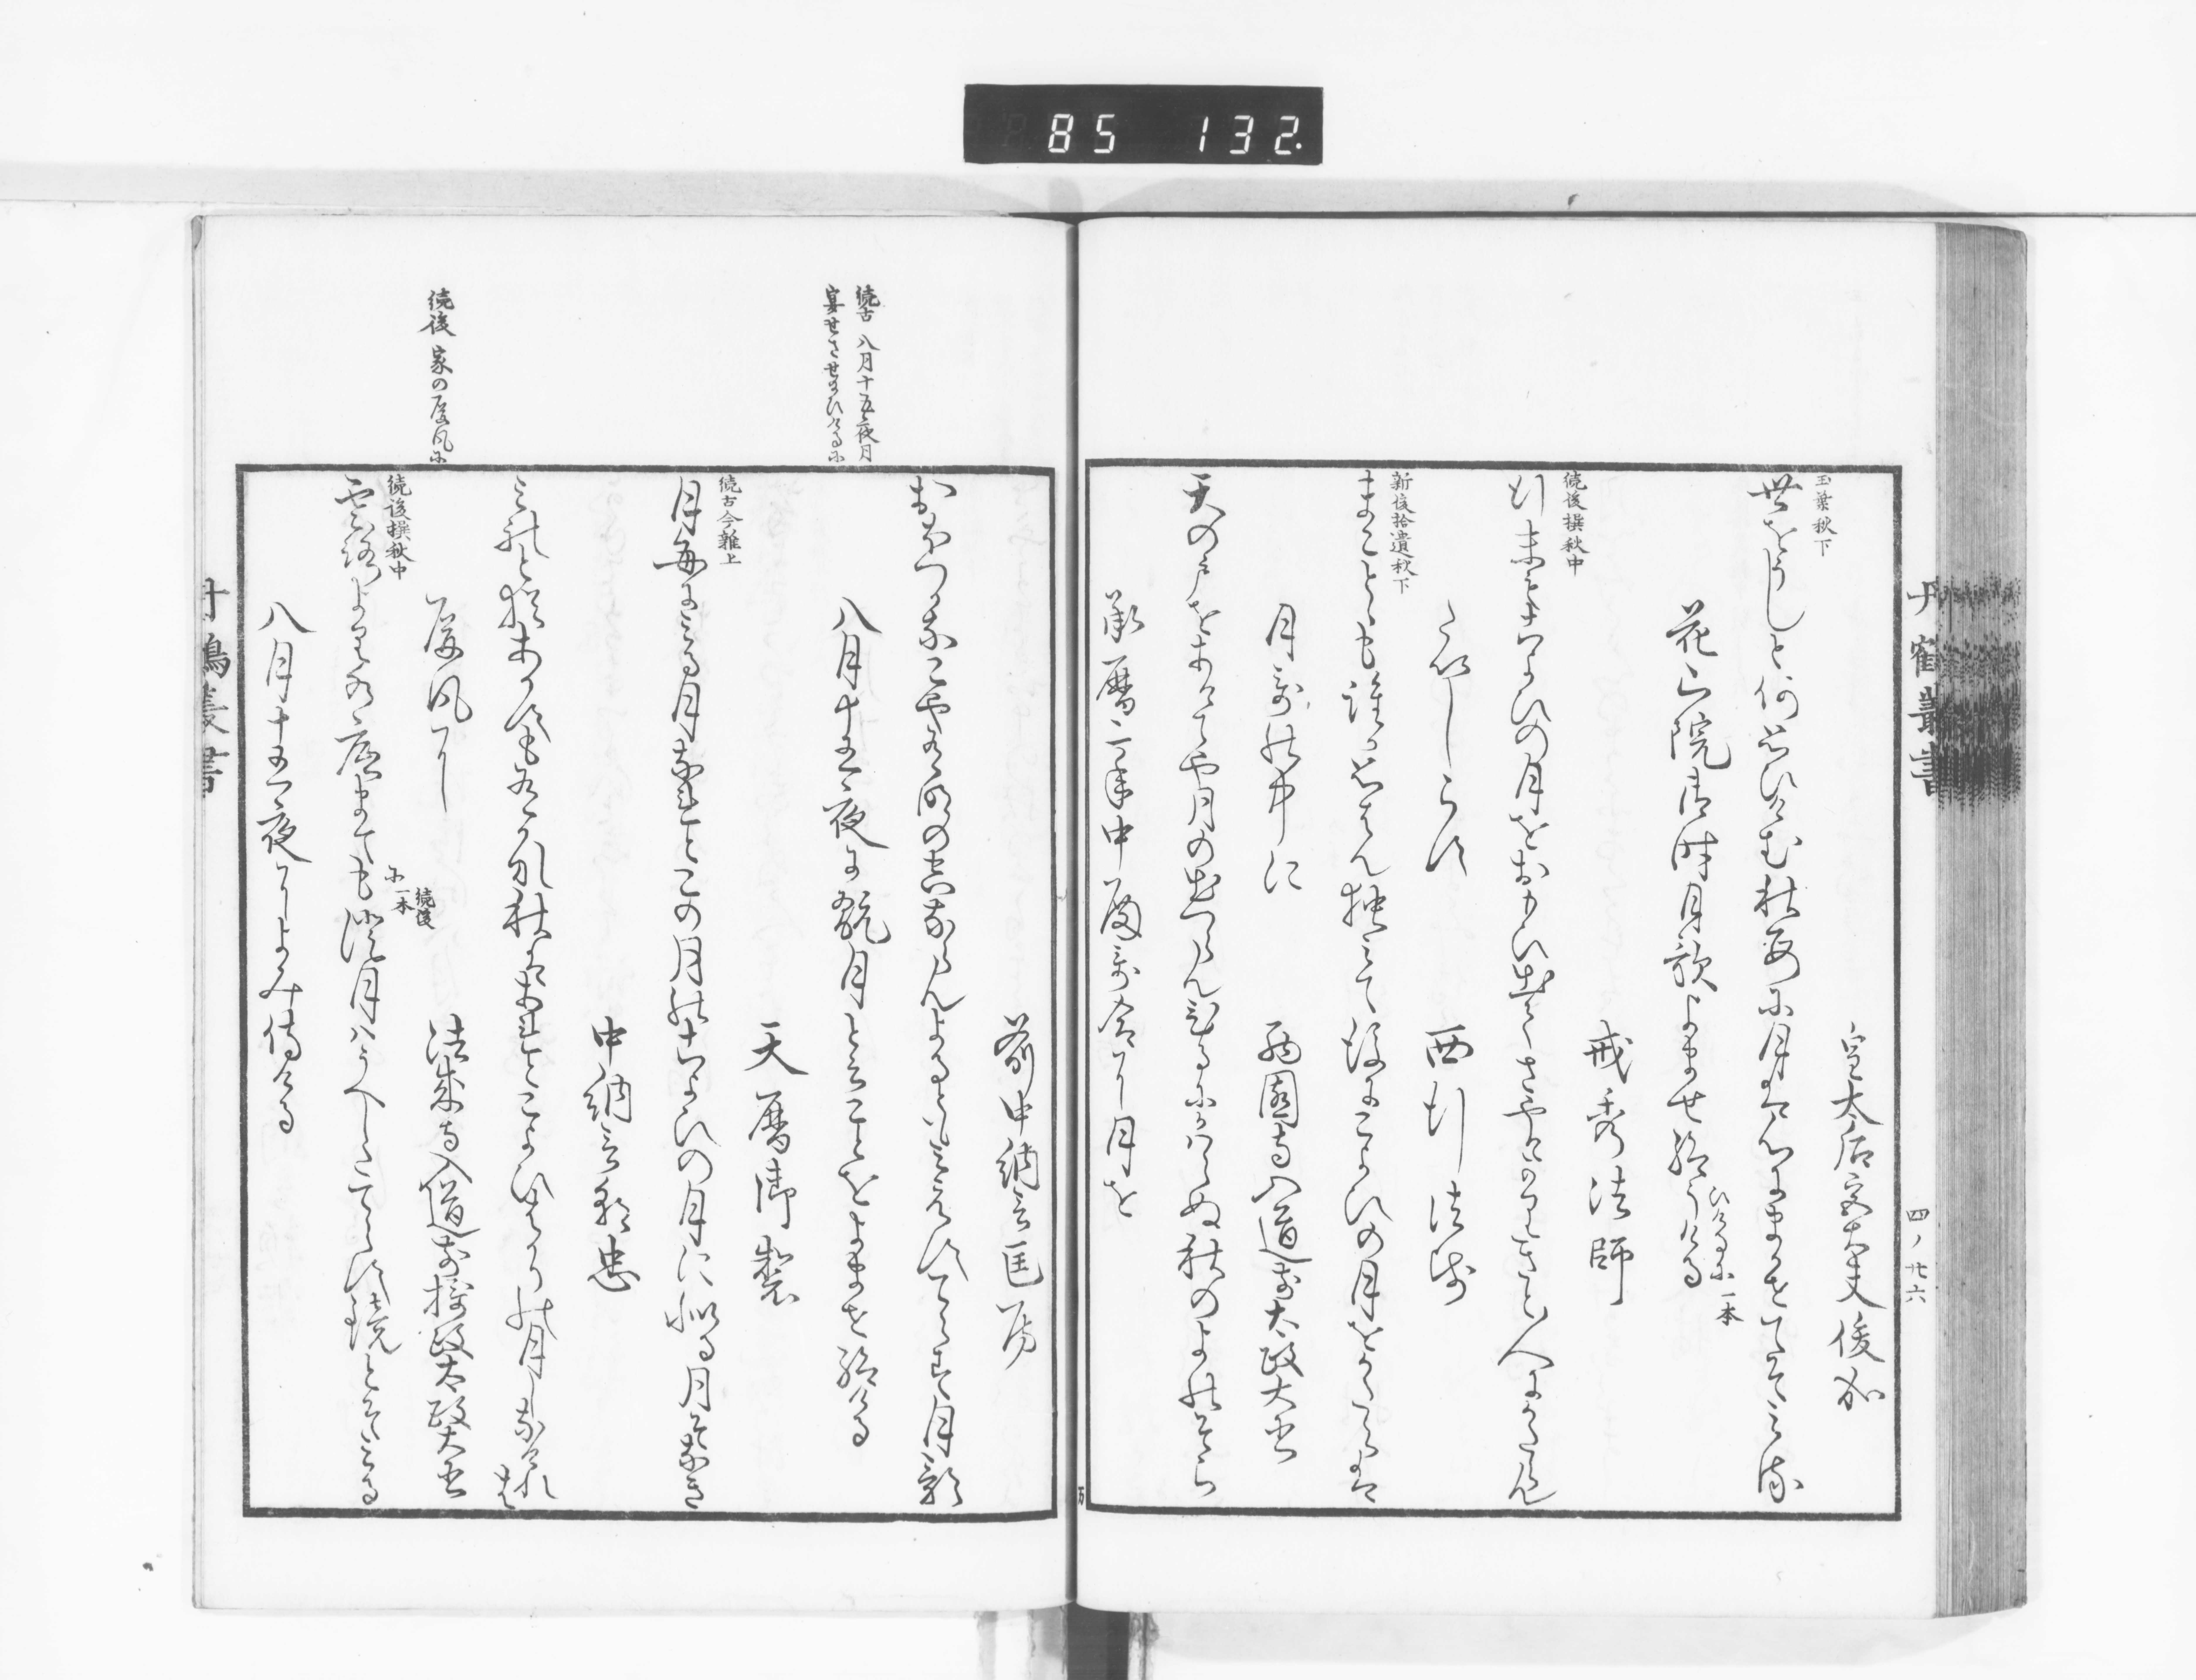 85 132
丹鶴叢書
四ノ廿六
皇太后宮大夫俊成
玉葉秋下
世をうしと何思ひけむ秋毎に月は心にまかせてそみる
花山院御時月歌よませ給うける
ひけるに一本
戒秀法師
続後撰秋中
行末もこよひの月をおもひ出てさやけかりきと人にかたらん
たいしらす
西行法師
新後拾遺秋下
まことゝも誰か思はん独みて後にこよひの月をかたらは
月哥の中に
西園寺入道前太政大臣
天の戸をあけてや月の出つらん
ぬ秋のよのそら
承暦二年中殿哥合に月を
前中納言匡房
月影
続古 八月十五夜月
宴せさせ給ひけるに
八月十五夜に翫月といふことをよませ給ける
天暦御製
続古今雑上
月毎にみる月なれとこの月のこよひの月に似る月そなき
中納言朝忠
みれと猶あかすも有かな秋
月しなけれは
続後 家の屏風に
屏風に
法成寺入道前摂政太政大臣
続後撰秋中
雲路よりの底まても澄月はうへしたてらす鏡とそみる
続後 に一本
八月十五夜によみ侍ける
丹鶴叢書